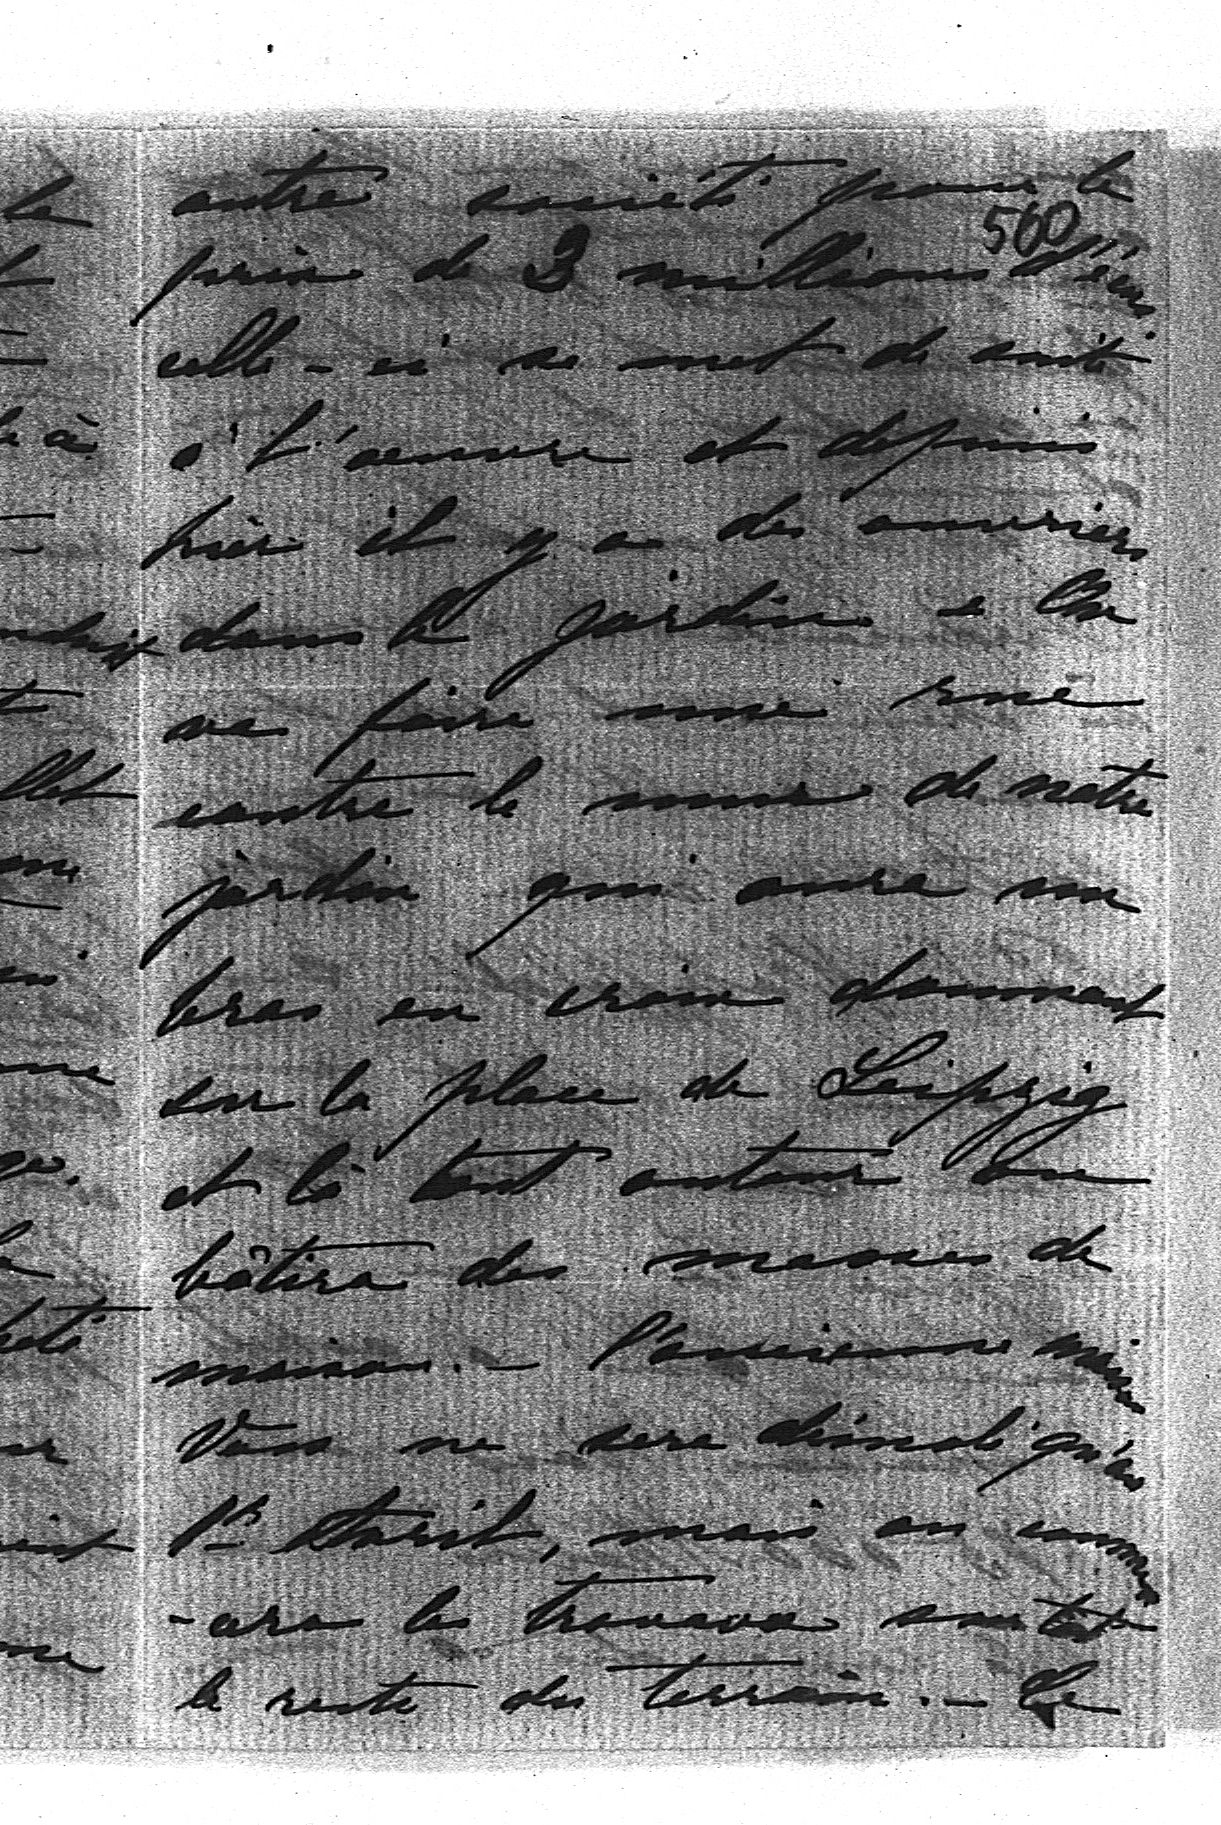 autre société pour le
560
prix de 3 millions d'écus
celle-ci se met de suite
à l'œuvre et depuis
hier il y a des ouvriers
dans le jardin - On
va faire une rue
contre le mur de notre
jardin qui aura un
bras en croix donnant
sur la place de Leipzig
et là tout autour on
bâtira des masses de
maisons. - l'ancienne maison
Voss ne sera démoli qu'au
1er Avril, mais on commen
-cera les travaux sur tout
le reste du terrain. - Le